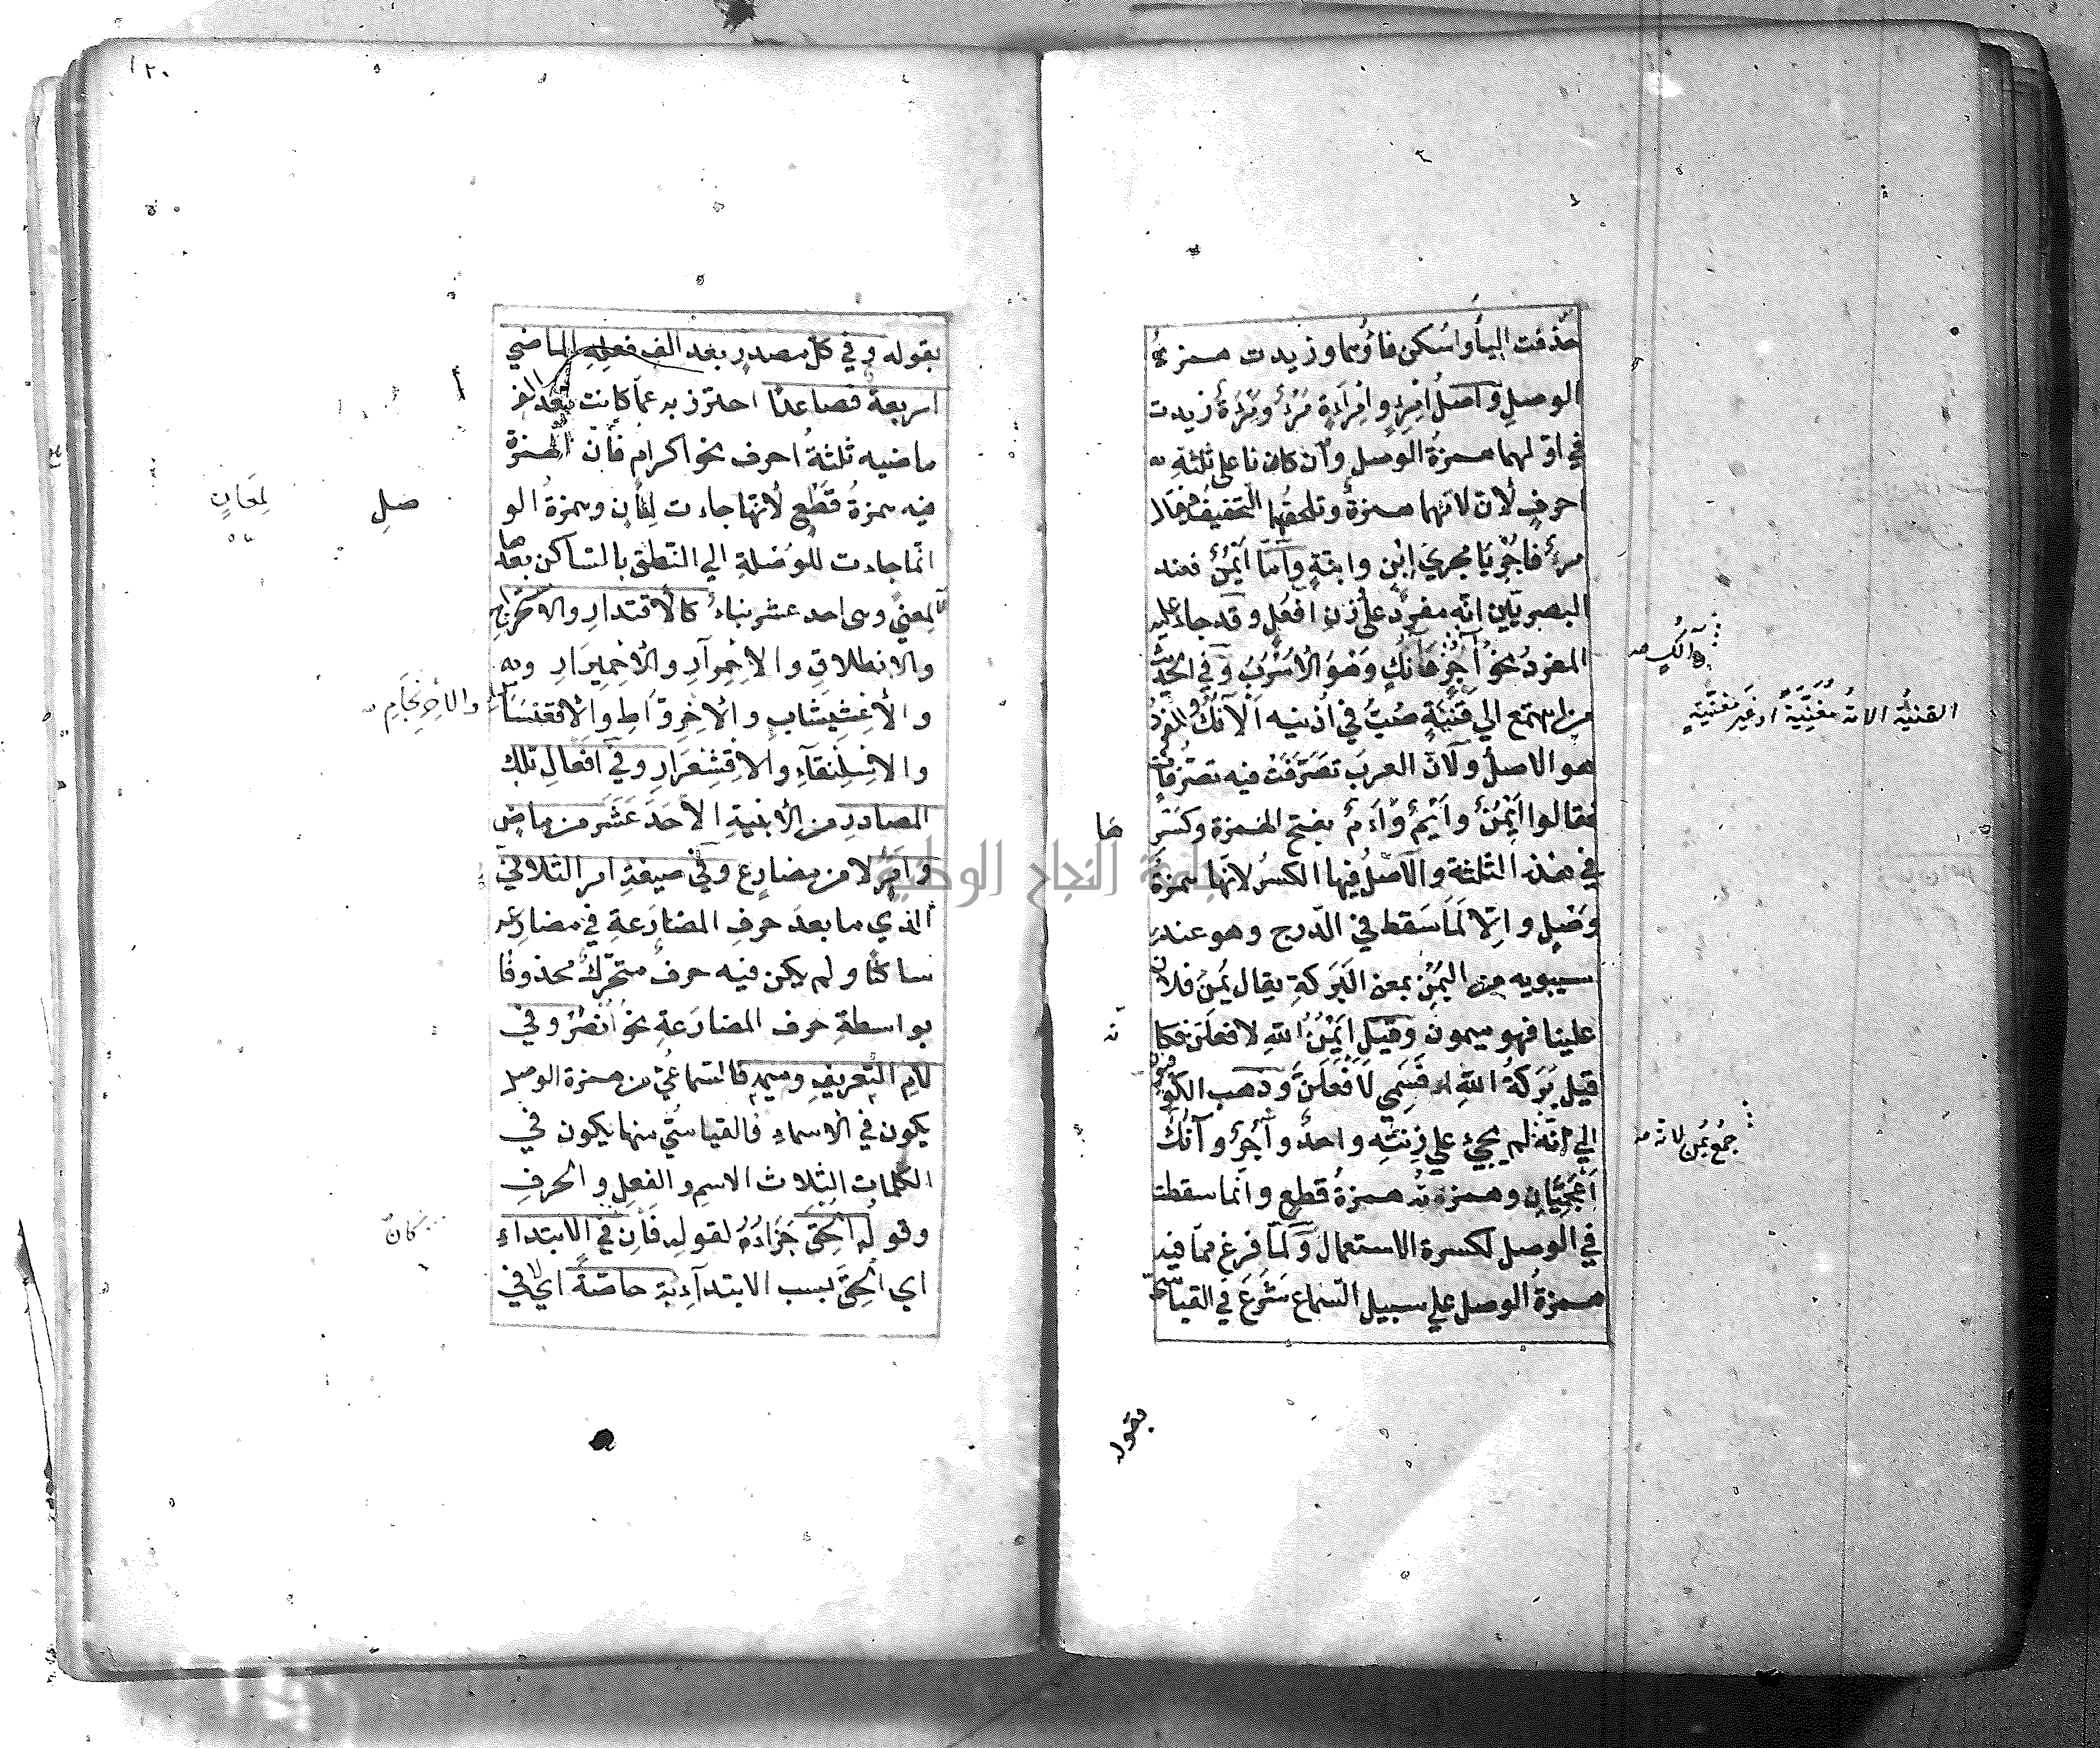 حذفت الياء واسكن فاؤهما وزيدت همزة
الوصل واصل امرء وامراءة مرء ومرءة زيدت
في اولهما همزة الوصل وان كانا على ثلثة
احرف لان لامهما همزة ويلحقها التخفيف فيقال
مر فاجريا مجرى ابن وابنة واما ايمن فعند
البصريين انه مفرد على زن افعل وقد جاء عليه
المفرد نحو آجر وآنك وهو الاسرب وفي الحديث
من استمع الي قنية صب في اذنيه الآنك والمفرد
هو الاصل ولان العرب تصرفت فيه تصرفات
فقالوا ايمن وايم وام بفتح الهمزة وكسر
ها
في هذه الثلثة والاصل فيها الكسر لانها همزة
وصل والا لما سقط في الدرج وهو عند
سيبويه من اليمن بمعنى البركة يقال يمن فلان
علينا فهو ميمون وقيل ايمن الله لافعلن فكا
نه
قيل بركة الله قسمي لافعلن وذهب الكوفيون
الي انه لم يجئ علي زنته واحد وآجر وآنك
اعجميان وهمزته همزة قطع وانما سقطت
في الوصل لكسرة الاستعمال ولما فرغ مما فيه
همزة الوصل علي سبيل السماع شرع في القياسي
بقوله
وآنك
القنية الامة مغنية او غير مغنية
جمع يمن لانه
٢٠
بقوله وفي كل مصدر بعد الف فعله الماضي
اربعة فصاعدا احترز به عما كانت بعد الف
ماضيه ثلثة احرف نحو اكرام فان الهمزة
فيه همزة قطع لانها جاءت لمعان وهمزة الو
صل
لمعان
انما جاءت للوصلة الي النطق بالساكن بعدها
لا لمعني وهي احد عشر بناء كالاقتدار والاستخراج
والانطلاق والاحمرار والاحميرار
والاعشيشاب والاخرواط والاقعنساس
والاحرنجام
والاسلنقاء والاقشعرار وفي افعال تلك
المصادر من الابنية الاحد عشر من ماض
وامر لا من مضارع وفي صيغة امر الثلاثي
الذي ما بعد حرف المضارعة في مضارعه
ساكنا ولم يكن فيه حرف متحرك محذوفا
بواسطة حرف المضارعة نحو انصر وفي
لام التعريف وميمه فالسماعي من همزة الوصل
يكون في الاسماء فالقياسي منها يكون في
الكلمات الثلاث الاسم والفعل والحرف
وقوله الحق جزاؤه لقوله فان في الابتداء
كان
اي الحق بسبب الابتداء به خاصة اي لا في